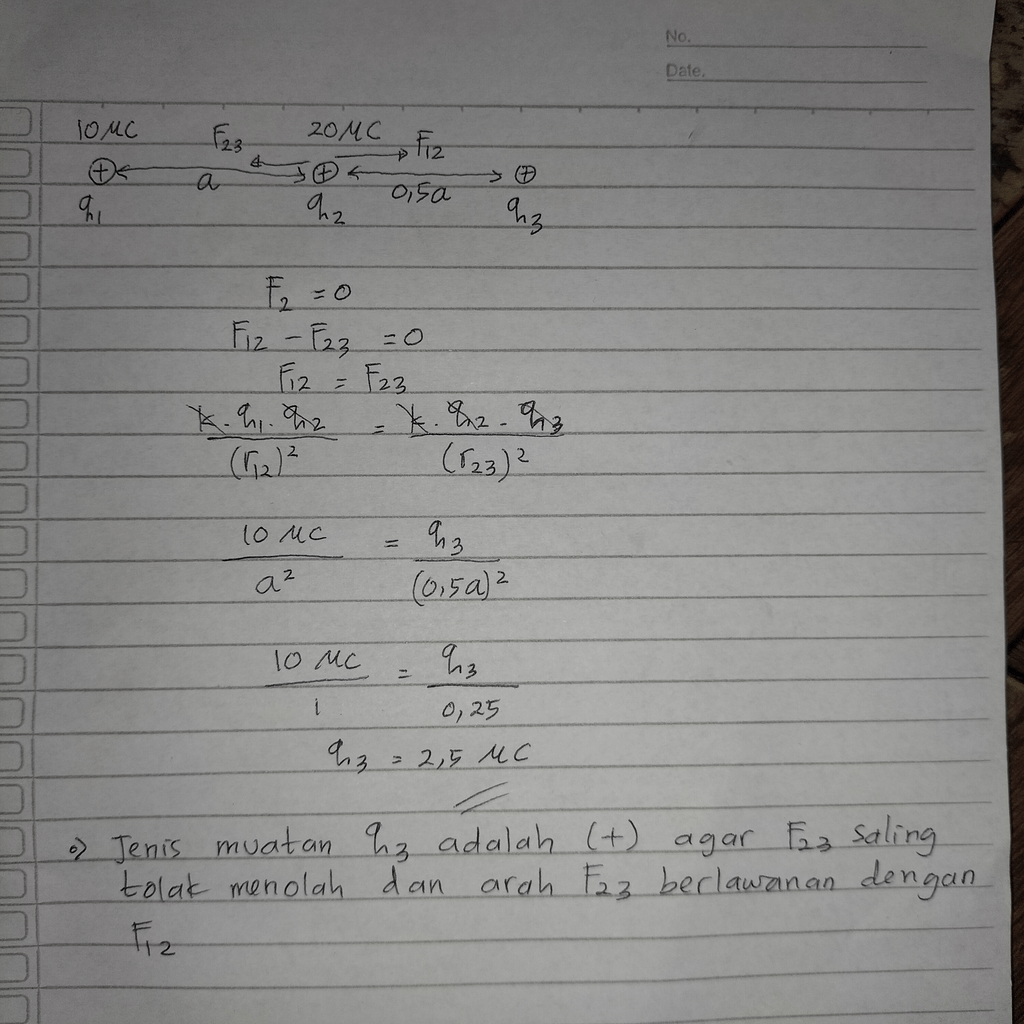 No.
Date.
10 μC F₂₃ 20 μC F₁₂
⊕ a ⊕ 0,5a ⊕
q₁ q₂ q₃
F₂ = 0
F₁₂ - F₂₃ = 0
F₁₂ = F₂₃
k. q₁. q₂ = k. q₂. q₃
(r₁₂)² (r₂₃)²
10 μC = q₃
a² (0,5a)²
10 μC = q₃
1 0,25
q₃ = 2,5 μC
Jenis muatan q₃ adalah (+) agar F₂₃ saling
tolak menolah dan arah F₂₃ berlawanan dengan
F₁₂